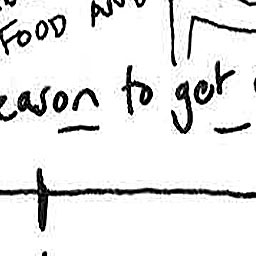 FOOD AND
eason to get